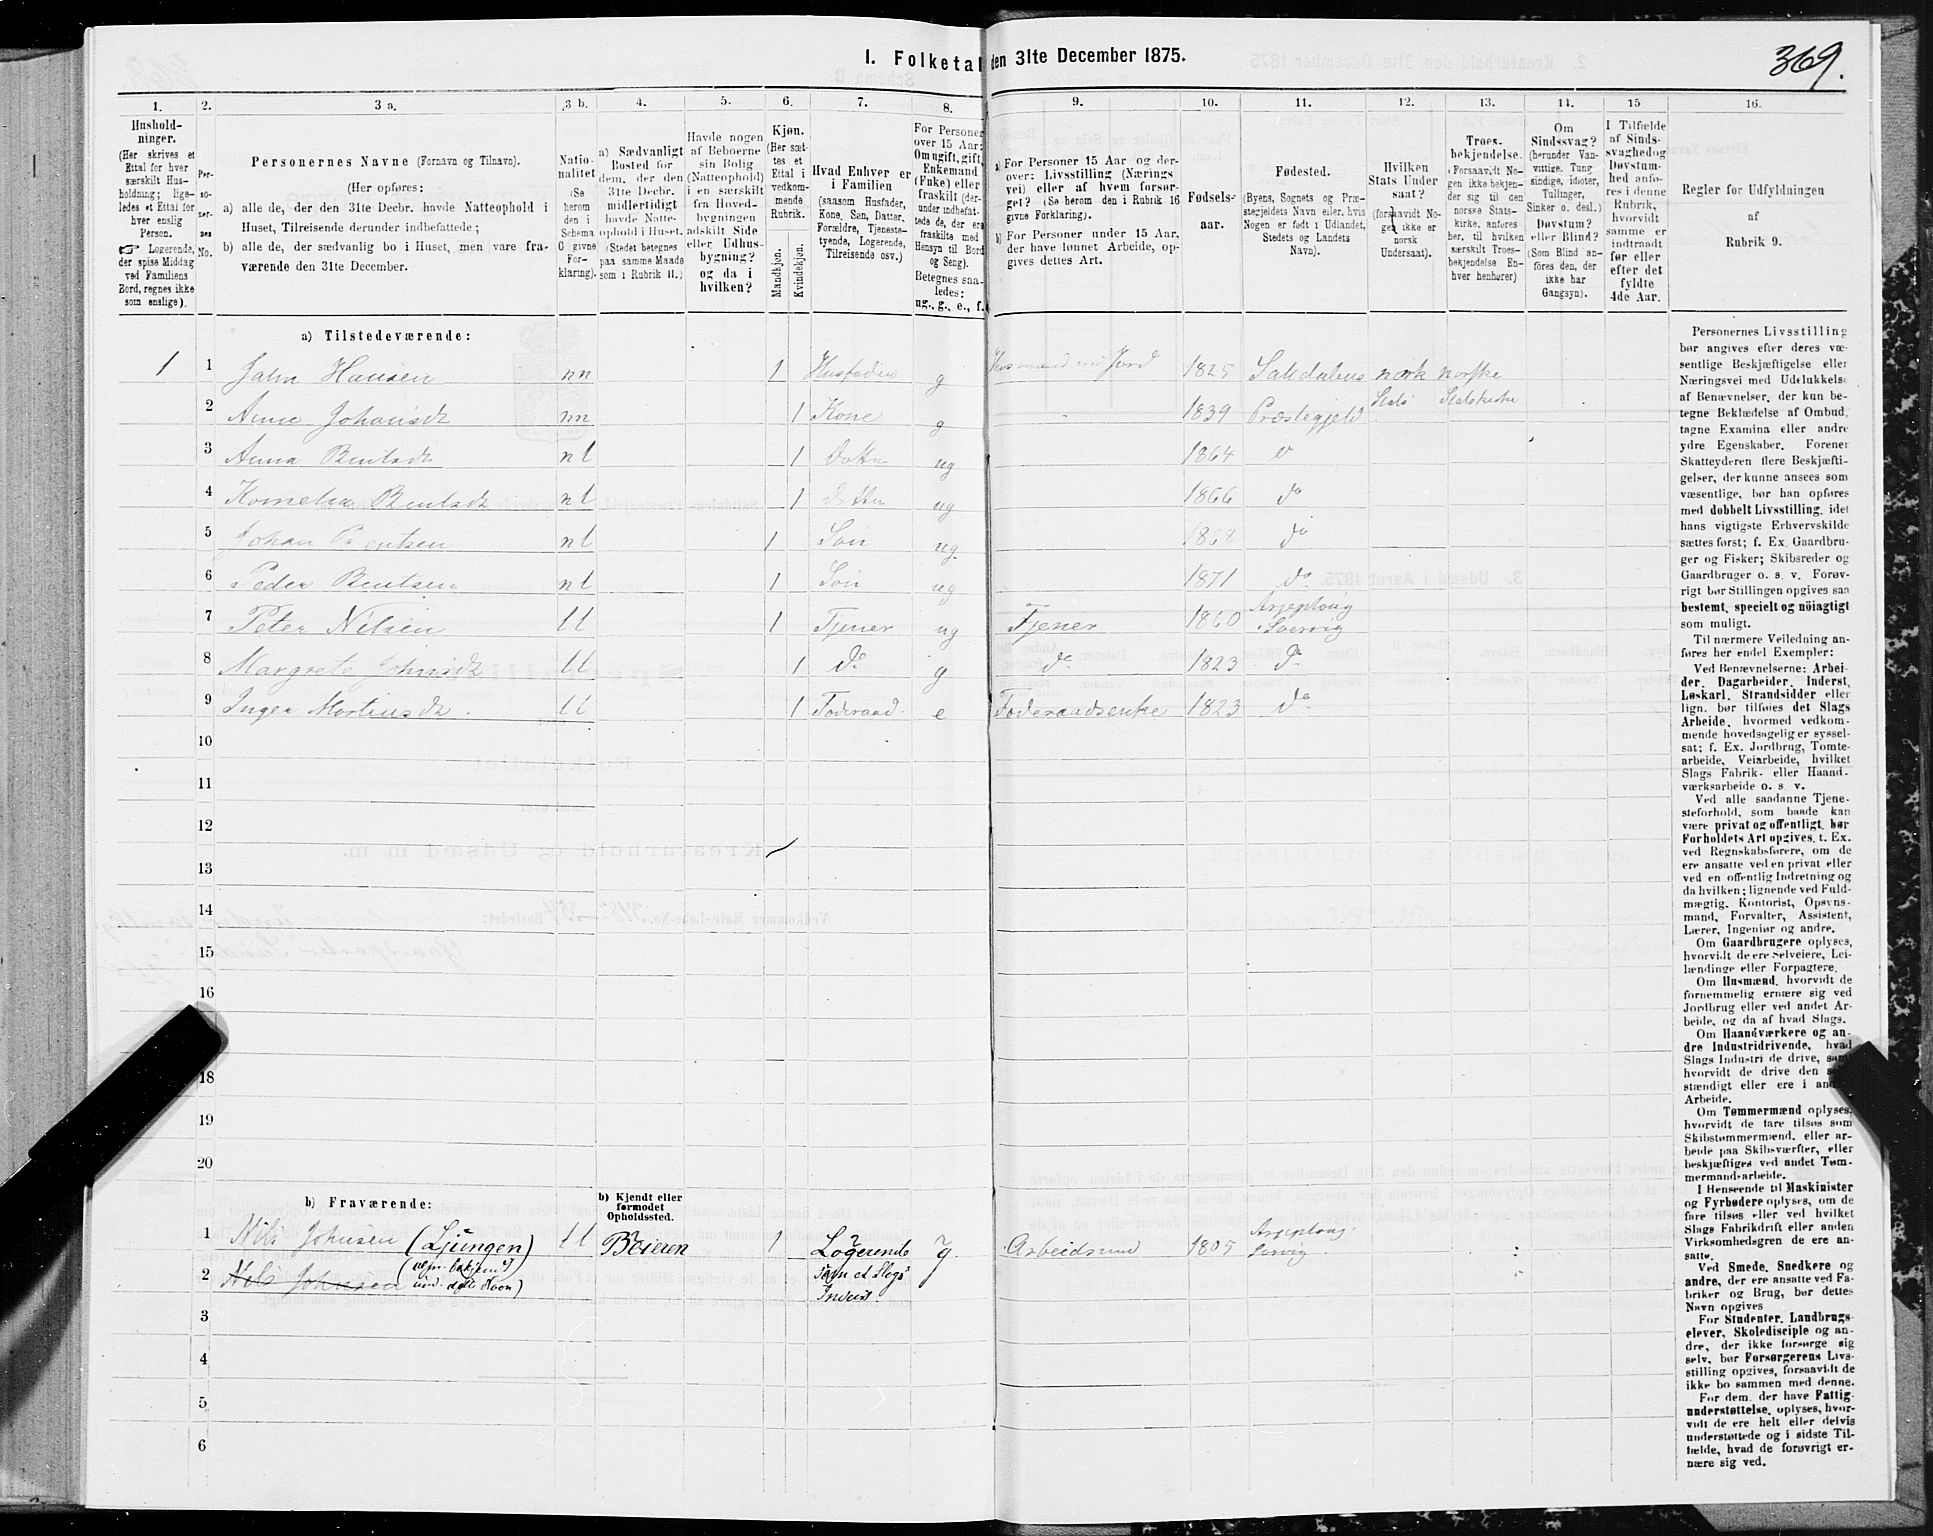 1. Folketal den 31te December 1875.
369.
1.
2.
3 a.
3 b.
4.
5.
6.
7.
8.
9.
10.
11.
12.
13.
14.
15
16.
Hushold-
ninger.
(Her skrives et
Ettal for hver
særskilt Hus-
holdning; lige-
ledes et Ettal for
hver enslig
Person.
☞ Logerende,
der spise Middag
ved Familiens
Bord, regnes ikke
som enslige).
Per-
so-
ner-
nes
No.
Personernes Navne (Fornavn og Tilnavn).
(Her opføres:
a) alle de, der den 31te Decbr. havde Natteophold i
Huset, Tilreisende derunder indbefattede;
b) alle de, der sædvanlig bo i Huset, men vare fra-
værende den 31te December.
Natio-
nalitet
(Se
herom
den i
Schema
C givne
For-
klaring).
a) Sædvanligt
Bosted for
dem, der den
31te Decbr.
midlertidigt
havde Natte-
ophold i Huset.
(Stedet betegnes
paa samme Maade
som i Rubrik 11.)
Havde nogen
af Beboerne
sin Bolig
(Natteophold)
i en særskilt
fra Hoved-
bygningen
adskilt Side
eller Udhus-
bygning?
og da i
hvilken?
Kjøn.
(Her sæt-
tes et
Ettal i
vedkom-
mende
Rubrik.
Mandkjøn.
Kvindekjøn.
Hvad Enhver er
i Familien
(saasom Husfader,
Kone, Søn, Datter,
Forældre, Tjeneste-
tyende, Logerende,
Tilreisende osv.)
For Personer
over 15 Aar:
Om ugift, gift,
Enkemand
(Enke) eller
fraskilt (der-
under indbefat-
tede de, der ere
fraskilte med
Hensyn til Bord
og Seng).
Betegnes saa-
ledes:
ug., g., e., f.
a) For Personer 15 Aar og der-
over: Livsstilling (Nærings
vei) eller af hvem forsør-
get? (Se herom den i Rubrik 16
givne Forklaring).
b) For Personer under 15 Aar,
der have lønnet Arbeide, op-
gives dettes Art.
Fødsels-
aar.
Fødested.
(Byens, Sognets og Præ-
stegjeldets Navn eller, hvis
Nogen er født i Udlandet,
Stedets og Landets
Navn).
Hvilken
Stats Under
saat?
(forsaavidt No-
gen ikke er
norsk
Undersaat).
Troes-
bekjendelse.
(Forsaavidt No-
gen ikke bekjen-
der sig til den
norske Stats-
kirke, anføres
her, til hvilken
særskilt Troes-
bekjendelse En-
hver henhører)
Om
Sindssvag?
(herunder Van-
vittige, Tung
sindige, Idioter,
Tullinger,
Sinker o. desl.)
Døvstum?
eller Blind?
(Som Blind an-
føres den, der
ikke har
Gangsyn).
I Tilfælde
af Sinds-
svaghed og
Døvstum-
hed anfø-
res i denne
Rubrik,
hvorvidt
samme er
indtraadt
før eller
efter det
fyldte
4de Aar.
Regler for Udfyldningen
af
Rubrik 9.
a) Tilstedeværende:
1 1 Jahn Hansen nn 1 Husfader g Husmand med Jord 1825 Saltdalens norsk norske
2 Anne Johansdt nn 1 Kone g 1839 Præstegjeld Stats Statskirke
3 Anna Bentsdt nl 1 Datter ug 1864
4 Kornelia Bentsdt nl 1 Datter ug 1866 do
5 Johan Bentsen nl 1 Søn ug. 1868 do
6 Peder Bentsen nl 1 Søn ug 1871 do
7 Peter Nilsen ll 1 Tjener ug Tjener 1860 Arjeploug Sverrig
8 Margrete Johnsdt ll 1 do g do 1823 do
9 Inger Mortensdt. ll 1 Føderaad. e Føderaadsenke 1823 do
10
11
12
13
14
15
16
18
19
20
b) Fraværende:
b) Kjendt eller
formodet
Opholdssted.
1 Nils Johnsen (Ljungen) ll Beieren 1 Logerende g. Arbeidsmd 1805 Arjeploug Sverig
2 Nils Johnsen
3
4
5
6
Personernes Livsstilling
bør angives efter deres væ-
sentlige Beskjæftigelse eller
Næringsvei med Udelukkelse
af Benævnelser, der kun be-
tegne Beklædelse af Ombud,
tagne Examina eller andre
ydre Egenskaber. Forener
Skatteyderen flere Beskjæfti-
gelser, der kunne ansees som
væsentlige, bør han opføres
med dobbelt Livsstilling, idet
hans vigtigste Erhvervskilde
sættes først; f. Ex. Gaardbru-
ger og Fisker; Skibsreder og
Gaardbruger o. s. v. Forøv-
rigt bør Stillingen opgives saa
bestemt, specielt og nøiagtigt
som muligt.
Til nærmere Veiledning an-
føres her endel Exempler:
Ved Benævnelserne: Arbei-
der, Dagarbeider, Inderst,
Løskarl, Strandsidder eller
lign. bør tilføies det Slags
Arbeide, hvormed vedkom-
mende hovedsagelig er syssel-
sat; f. Ex. Jordbrug, Tomte-
arbeide, Veiarbeide, hvilket
Slags Fabrik- eller Haand-
værksarbeide o. s. v.
Ved alle saadanne Tjene-
steforhold, som baade kan
være privat og offentligt, bør
Forholdets Art opgives, t. Ex.
ved Regnskabsførere, om de
ere ansatte ved en privat eller
ved en offentlig Indretning og
da hvilken; lignende ved Fuld-
mægtig, Kontorist, Opsyns-
mand, Forvalter, Assistent,
Lærer, Ingeniør og andre.
Om Gaardbrugere oplyses,
hvorvidt de ere Selveiere, Lei-
lændinge eller Forpagtere.
Om Husmænd, hvorvidt de
fornemmelig ernære sig ved
Jordbrug eller ved andet Ar-
beide, og da af hvad Slags.
Om Haandværkere og an-
dre Industridrivende, hvad
Slags Industri de drive, samt
hvorvidt de drive den
stændigt eller ere i
Arbeide.
Om Tømmermænd oplyses,
hvorvidt de fare tilsøs som
Skibstømmermænd, eller ar-
beide paa Skibsværfter, eller
beskjæftiges ved andet Tøm-
mermandsarbeide.
I Henseende til Maskinister
og Fyrbødere oplyses, om de
fare tilsøs eller ved hvilket
Slags Fabrikdrift eller anden
Virksomhedsgren de ere an-
satte.
Ved Smede, Snedkere og
andre, der ere ansatte ved Fa-
briker og Brug, bør dettes
Navn opgives
For Studenter, Landbrugs-
elever, Skoledisciple og an-
dre, der ikke forsørge sig
selv, bør Forsørgerens Livs-
stilling opgives, forsaavidt de
ikke bo sammen med denne.
For dem, der have Fattig-
understøttelse, oplyses, hvor-
vidt de ere helt eller delvis
understøttede og i sidste Til-
fælde, hvad de forøvrigt er-
nære sig ved.